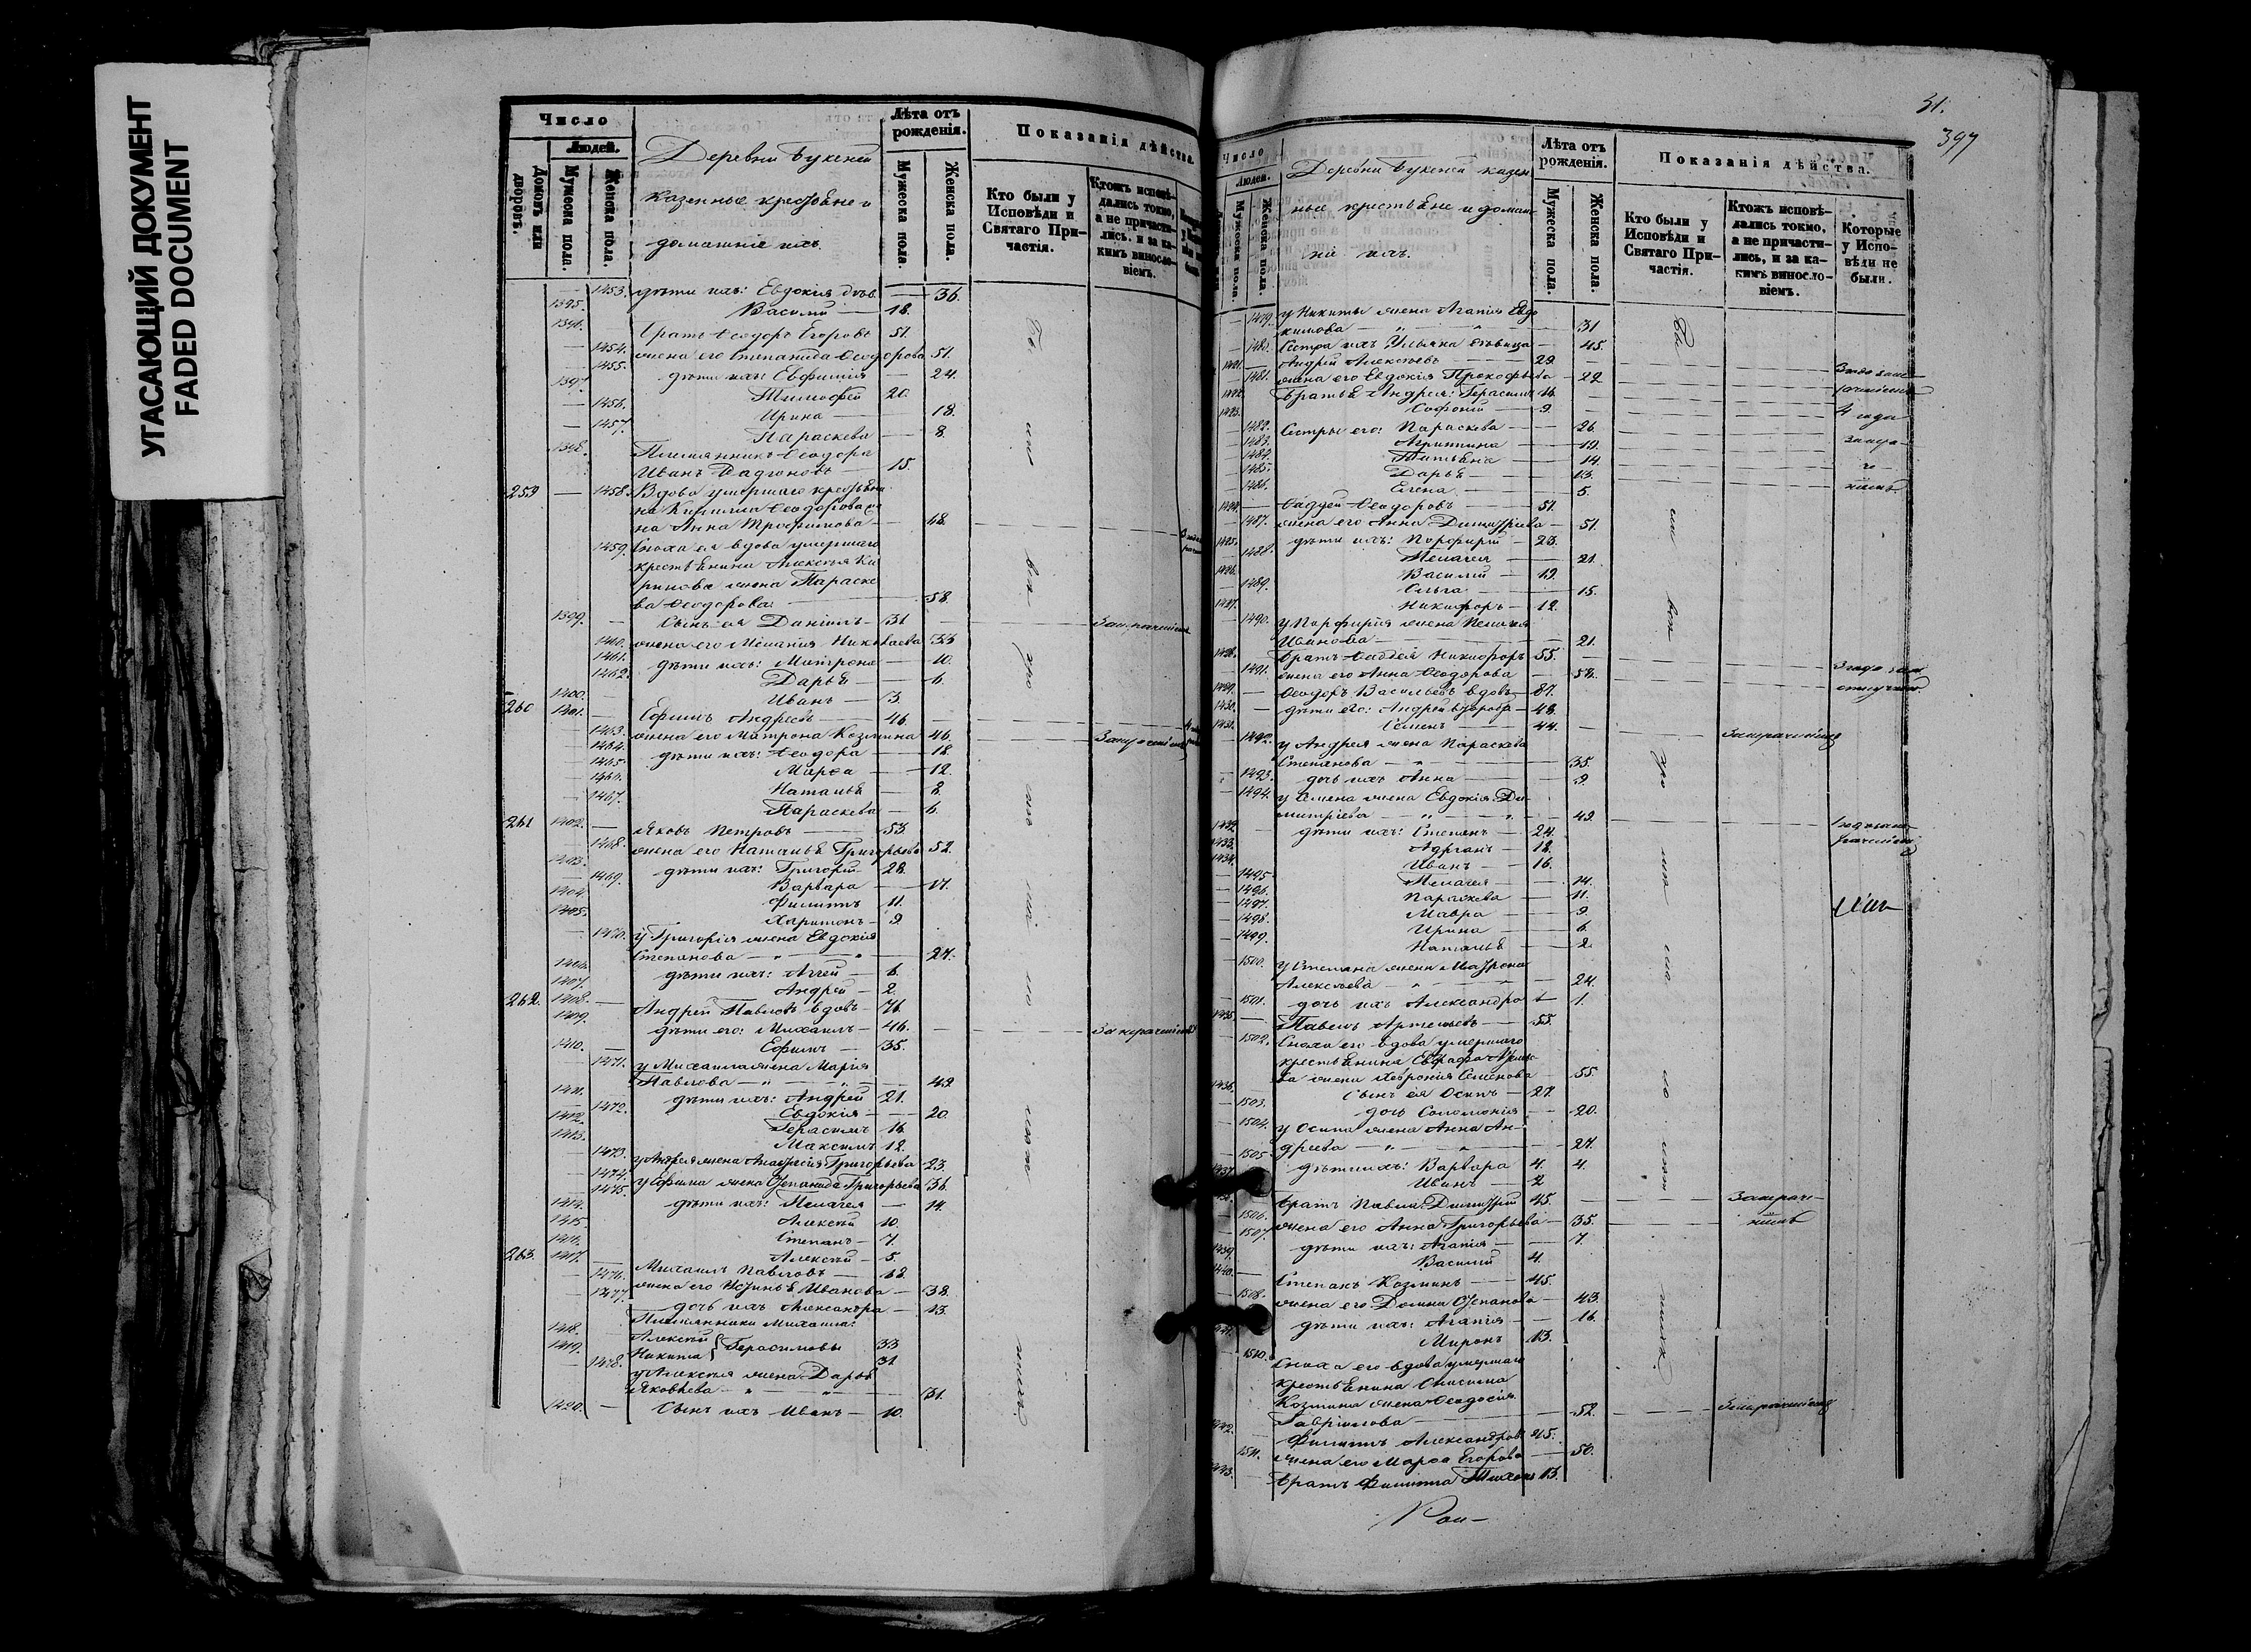 УГАСАЮЩИЙ ДОКУМЕНТ
FADED DOCUMENT
Число
Людей.
Домовъ или дворовъ.
Мужеска пола.
Женска пола.
Деревни Букеней
казенные крестьяне и
домашніе ихъ.
Лѣта отъ рожденія.
Мужеска пола.
Женска пола.
Показанія дѣйства.
Кто были у Исповѣди и Святаго Причастія.
Ктожъ исповѣдались токмо, а не причастились. и за какимъ винословіемъ.
1453. дѣти ихъ: Евдокія дѣв. 36.
1395. Василій 18.
1396. Братъ Ѳеодоръ Егоровъ 51.
1454. жена его Степанида Ѳеодорова 51.
1455. дѣти ихъ: Евфимія 24.
1397. Тимофей 20.
1456. Ирина 18.
1457. Параскева 8.
1398. Племянникъ Ѳеодора
Иванъ Родіоновъ 15.
259 1458. Вдова умершаго крестьяни
на Кирилла Ѳеодорова
Анна Трофимова 68.
1459. Сноха ея вдова умершаго
крестьянина Алексѣя Ки
рилова жена Параске
ва Ѳеодорова 58.
1399. Сынъ ея Даніилъ 31. За нраченіемъ
1460. жена его Меланія Никонаева 33
1461. дѣти ихъ: Матрона 10.
1462. Дарья 6.
1400. Иванъ 3.
260 1401. Ефимъ Андреевъ 46.
1463. жена его Матрона Козмина 46.
1464. дѣти ихъ: Ѳеодора 18.
1465. Марѳа 12.
1466. Наталья 8.
1467. Параскева 6.
261 1402. Яковъ Петровъ 53.
1468. жена его Наталья Григорьева 52.
1403. дѣти ихъ: Григорій 28.
1469. Варвара 17.
1404. Филиппъ 11.
1405. Харитонъ 9.
1470. у Григорія жена Евдокія
Степанова 27.
1406. дѣти ихъ: Аггей 6.
1407. Андрей 2.
262. 1408. Андрей Павловъ вдовъ 76.
1409. дѣти его: Михаилъ 46.
1410. Ефимъ 35.
1471. у Михаила жена Марія
Павлова 42
1411. дѣти ихъ: Андрей 21.
1472. Евдокія 20.
1412. Герасимъ 16.
1413. Максимъ 12.
1473. у Андрея жена Анастасія Григорьева 23.
1474. у Ефима жена Степанида Григорьева 36.
1475. дѣти ихъ: Пелагея 14.
1414. Алексѣй 10.
1415. Степанъ 7.
1416. Алексѣй 5.
263. 1417. Михаилъ Павловъ
1476. жена его Устинья Иванова 38.
1477. дочь ихъ Александра 13.
Племянники Михаила:
1418. Алексѣй
1419. Никита } Герасимовы 33 31
1478. у Алексѣя жена Дарья
Яковлева 31.
1420. Сынъ ихъ Иванъ 10.
31.
397
Число
Людей.
Мужеска пола.
Женска пола.
Деревни Букеней казен
ные крестьяне и домаш
ніе ихъ.
Лѣта отъ рожденія.
Мужеска пола.
Женска пола.
Показанія дѣйства.
Кто были у Исповѣди и Святаго Причастія.
Ктожъ исповѣдались токмо, а не причастились, и за какимъ винословіемъ.
Которые у Исповѣди не были.
1479. у Никиты жена Агапія Евдо
кимова 31
1480. Сестра ихъ Ульяна дѣвица 45.
1421. Андрей Алексѣевъ 29.
1481. жена его Евдокія Прокофьева 29
1422. Братья Андрея: Герасимъ 16.
1423. Софоній 9.
1482. Сестры его: Параскева 26.
1483. Агриппина 19.
1484. Татьяна 14.
1485. Дарья 13.
1486. Елена 5.
1424. Ѳаддей Ѳеодоровъ 51.
1487. жена его Анна Димитріева 51.
1425. дѣти ихъ: Порфирій 23.
1488. Пелагея 21.
1426. Василій 19.
1489. Ольга 15.
1427. Никифоръ 12.
1490. у Порфирія жена Пелагея
Иванова 21.
1428. Братъ Ѳаддея Никифоръ 55.
1491. жена его Анна Ѳеодорова 58.
1429. Ѳеодоръ Васильевъ вдовъ 87.
1430. дѣти его: Андрей 48.
1431. Семенъ 44. За нраченіемъ
1492. у Андрея жена Параскева
Степанова 35.
1493. дочь ихъ Анна 9.
1494. у Семена жена Евдокія Ди
митріева 49.
1432. дѣти ихъ: Степанъ 24.
1433. Адріанъ 18.
1434. Иванъ 16.
1495. Пелагея 14.
1496. Параскева 11.
1497. Мавра 9.
1498. Ирина 6.
1499. Наталья 2.
1500. у Степана жена Матрона
Алексѣева 24.
1501. дочь ихъ Александра 1.
1435. Павелъ Артемьевъ 55.
1502. Сноха его вдова умершаго
крестьянина Евграфа Артемье
ва жена Хеврокія Семенова 55.
1436. Сынъ ея Осипъ 27.
1503. дочь Соломонія 20.
1504. у Осипа жена Анна Ан
дреева 27.
1505. дѣти ихъ: Варвара 4.
1437. Иванъ 2
Братъ Павла Димитрій 45.
1506. жена его Анна Григорьева 35.
1507. дѣти ихъ: Агапія 7.
1439. Василій 4.
1440. Степанъ Козминъ 45.
1508. жена его Домна Степанова 43.
дѣти ихъ: Агапія 16.
Миронъ 13.
1510. Сноха его вдова умершаго
крестьянина Онисима
Козмина жена Ѳеодосія
Гавріилова 52.
1442. Филиппъ Александровъ 45.
1511. жена его Марѳа Егорова 50.
1443. Братъ Филиппа Тихонъ 13.